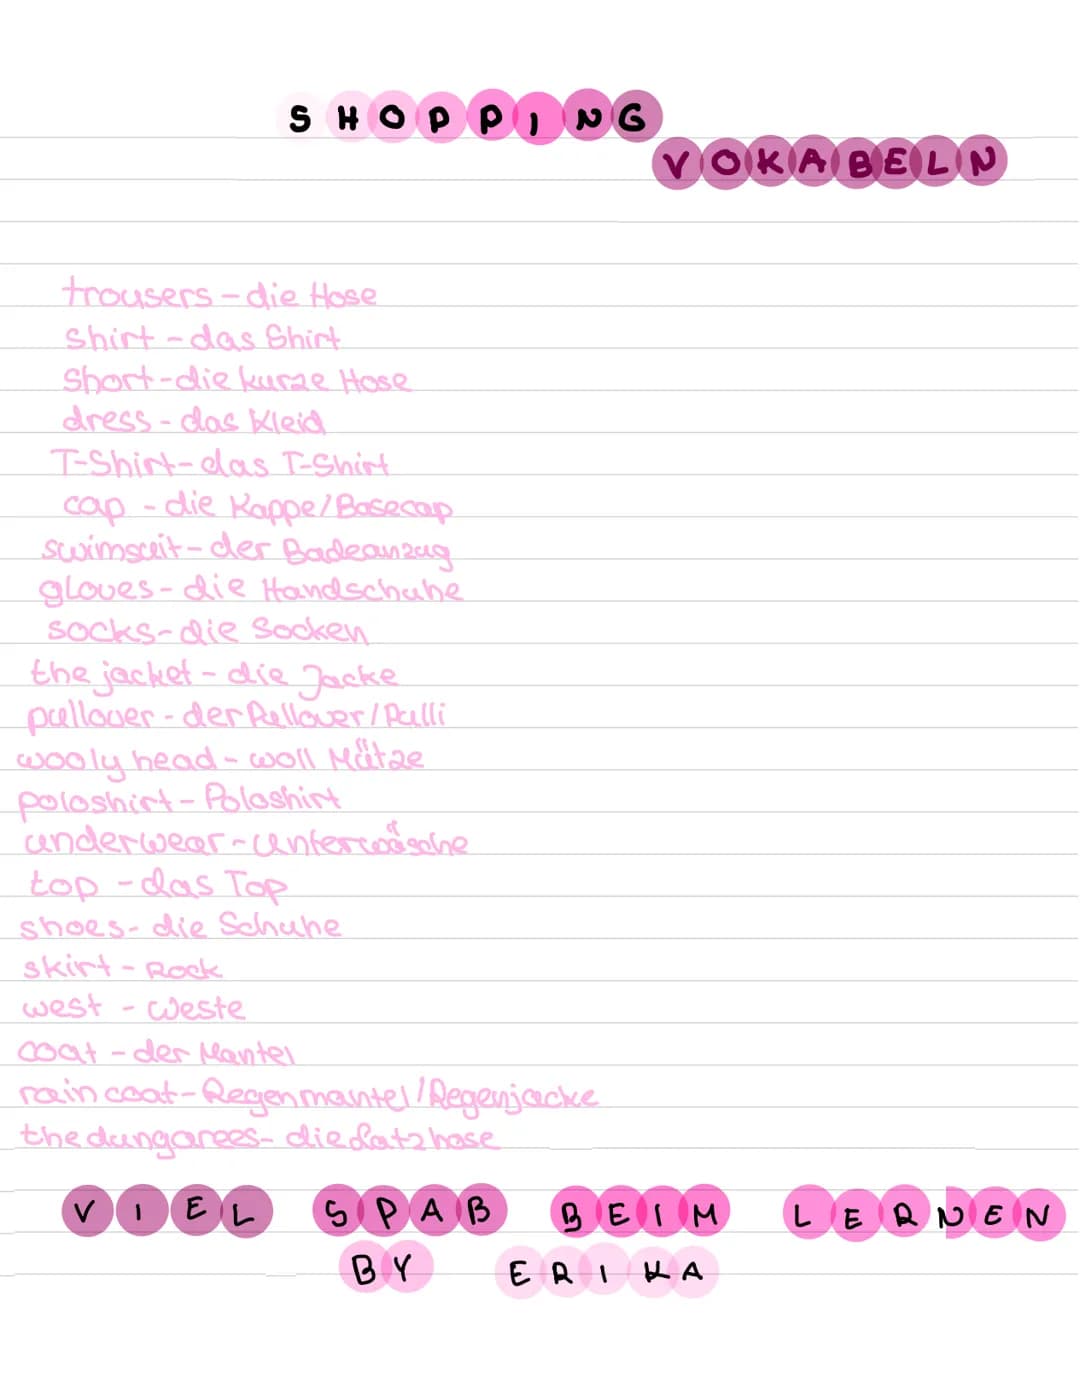 SHOPPING
VOKABELN
trousers - die Hose
Shirt - das Shirt
Short - die kurze Hose
dress - das Kleid
T-Shirt - das T-Shirt
cap - die Kappe/Basecap
swimsuit - der Badeanzug
gloves - die Handschuhe
socks - die Socken
the jacket - die Jacke
pullover - der Pullover/Pulli
wooly head - woll Mütze
poloshirt - Poloshirt
underwear - Unterwäsche
top - das Top
shoes - die Schuhe
skirt - Rock
west - Weste
coat - der Mantel
rain coat - Regenmantel/Regenjacke
the dungarees - die Latzhose
VIEL SPAß BEIM LERNEN
BY ERIKA